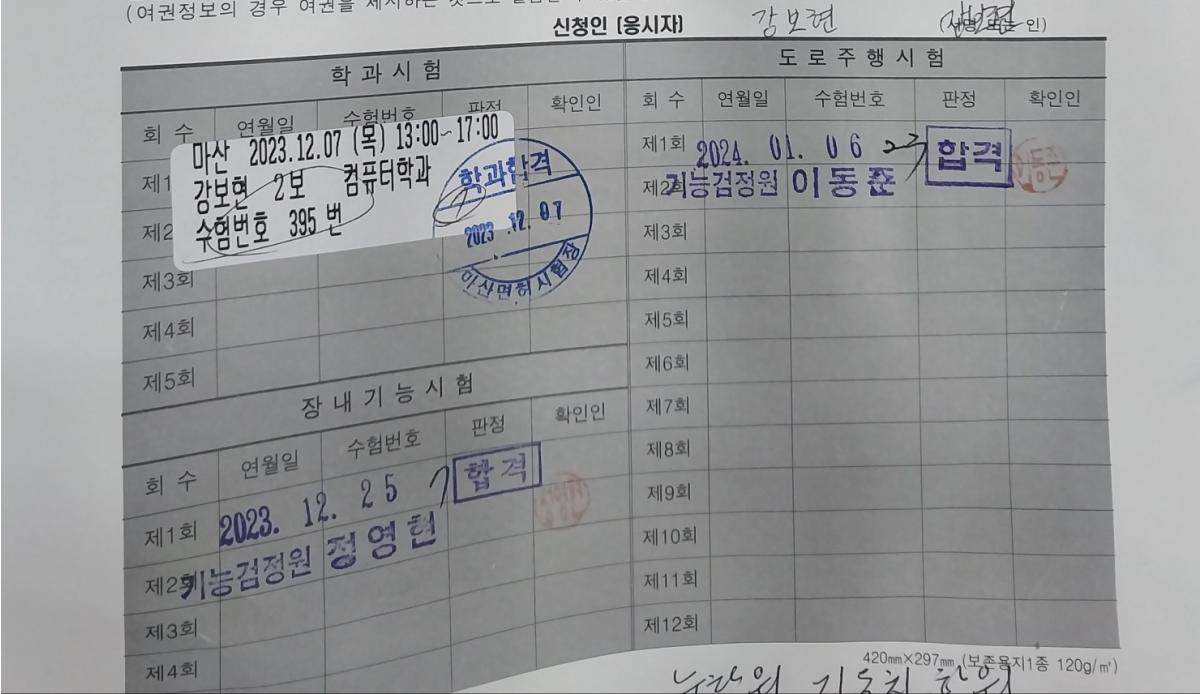 (여권정보의 경우 여권을
신청인 (응시자) 강보현
학 과 시 험
회 수 연월일 수험번호 판정 확인인
마산 2023.12.07 (목) 13:00~17:00
강보현 2보 컴퓨터학과
수험번호 395 번
학과합격
2023 .12. 07
마산면허시험장
제1
제2
제3회
제4회
제5회
장 내 기 능 시 험
회 수 연월일 수험번호 판정 확인인
제1회 2023. 12. 25 7 합격
제2 기능검정원 정영현
제3회
제4회
도 로 주 행 시 험
회 수 연월일 수험번호 판정 확인인
제1회 2024. 01. 06 23 합격 이동준
제2회 기능검정원 이동준
제3회
제4회
제5회
제6회
제7회
제8회
제9회
제10회
제11회
제12회
420㎜×297㎜ (보존용지1종 120g/㎡)